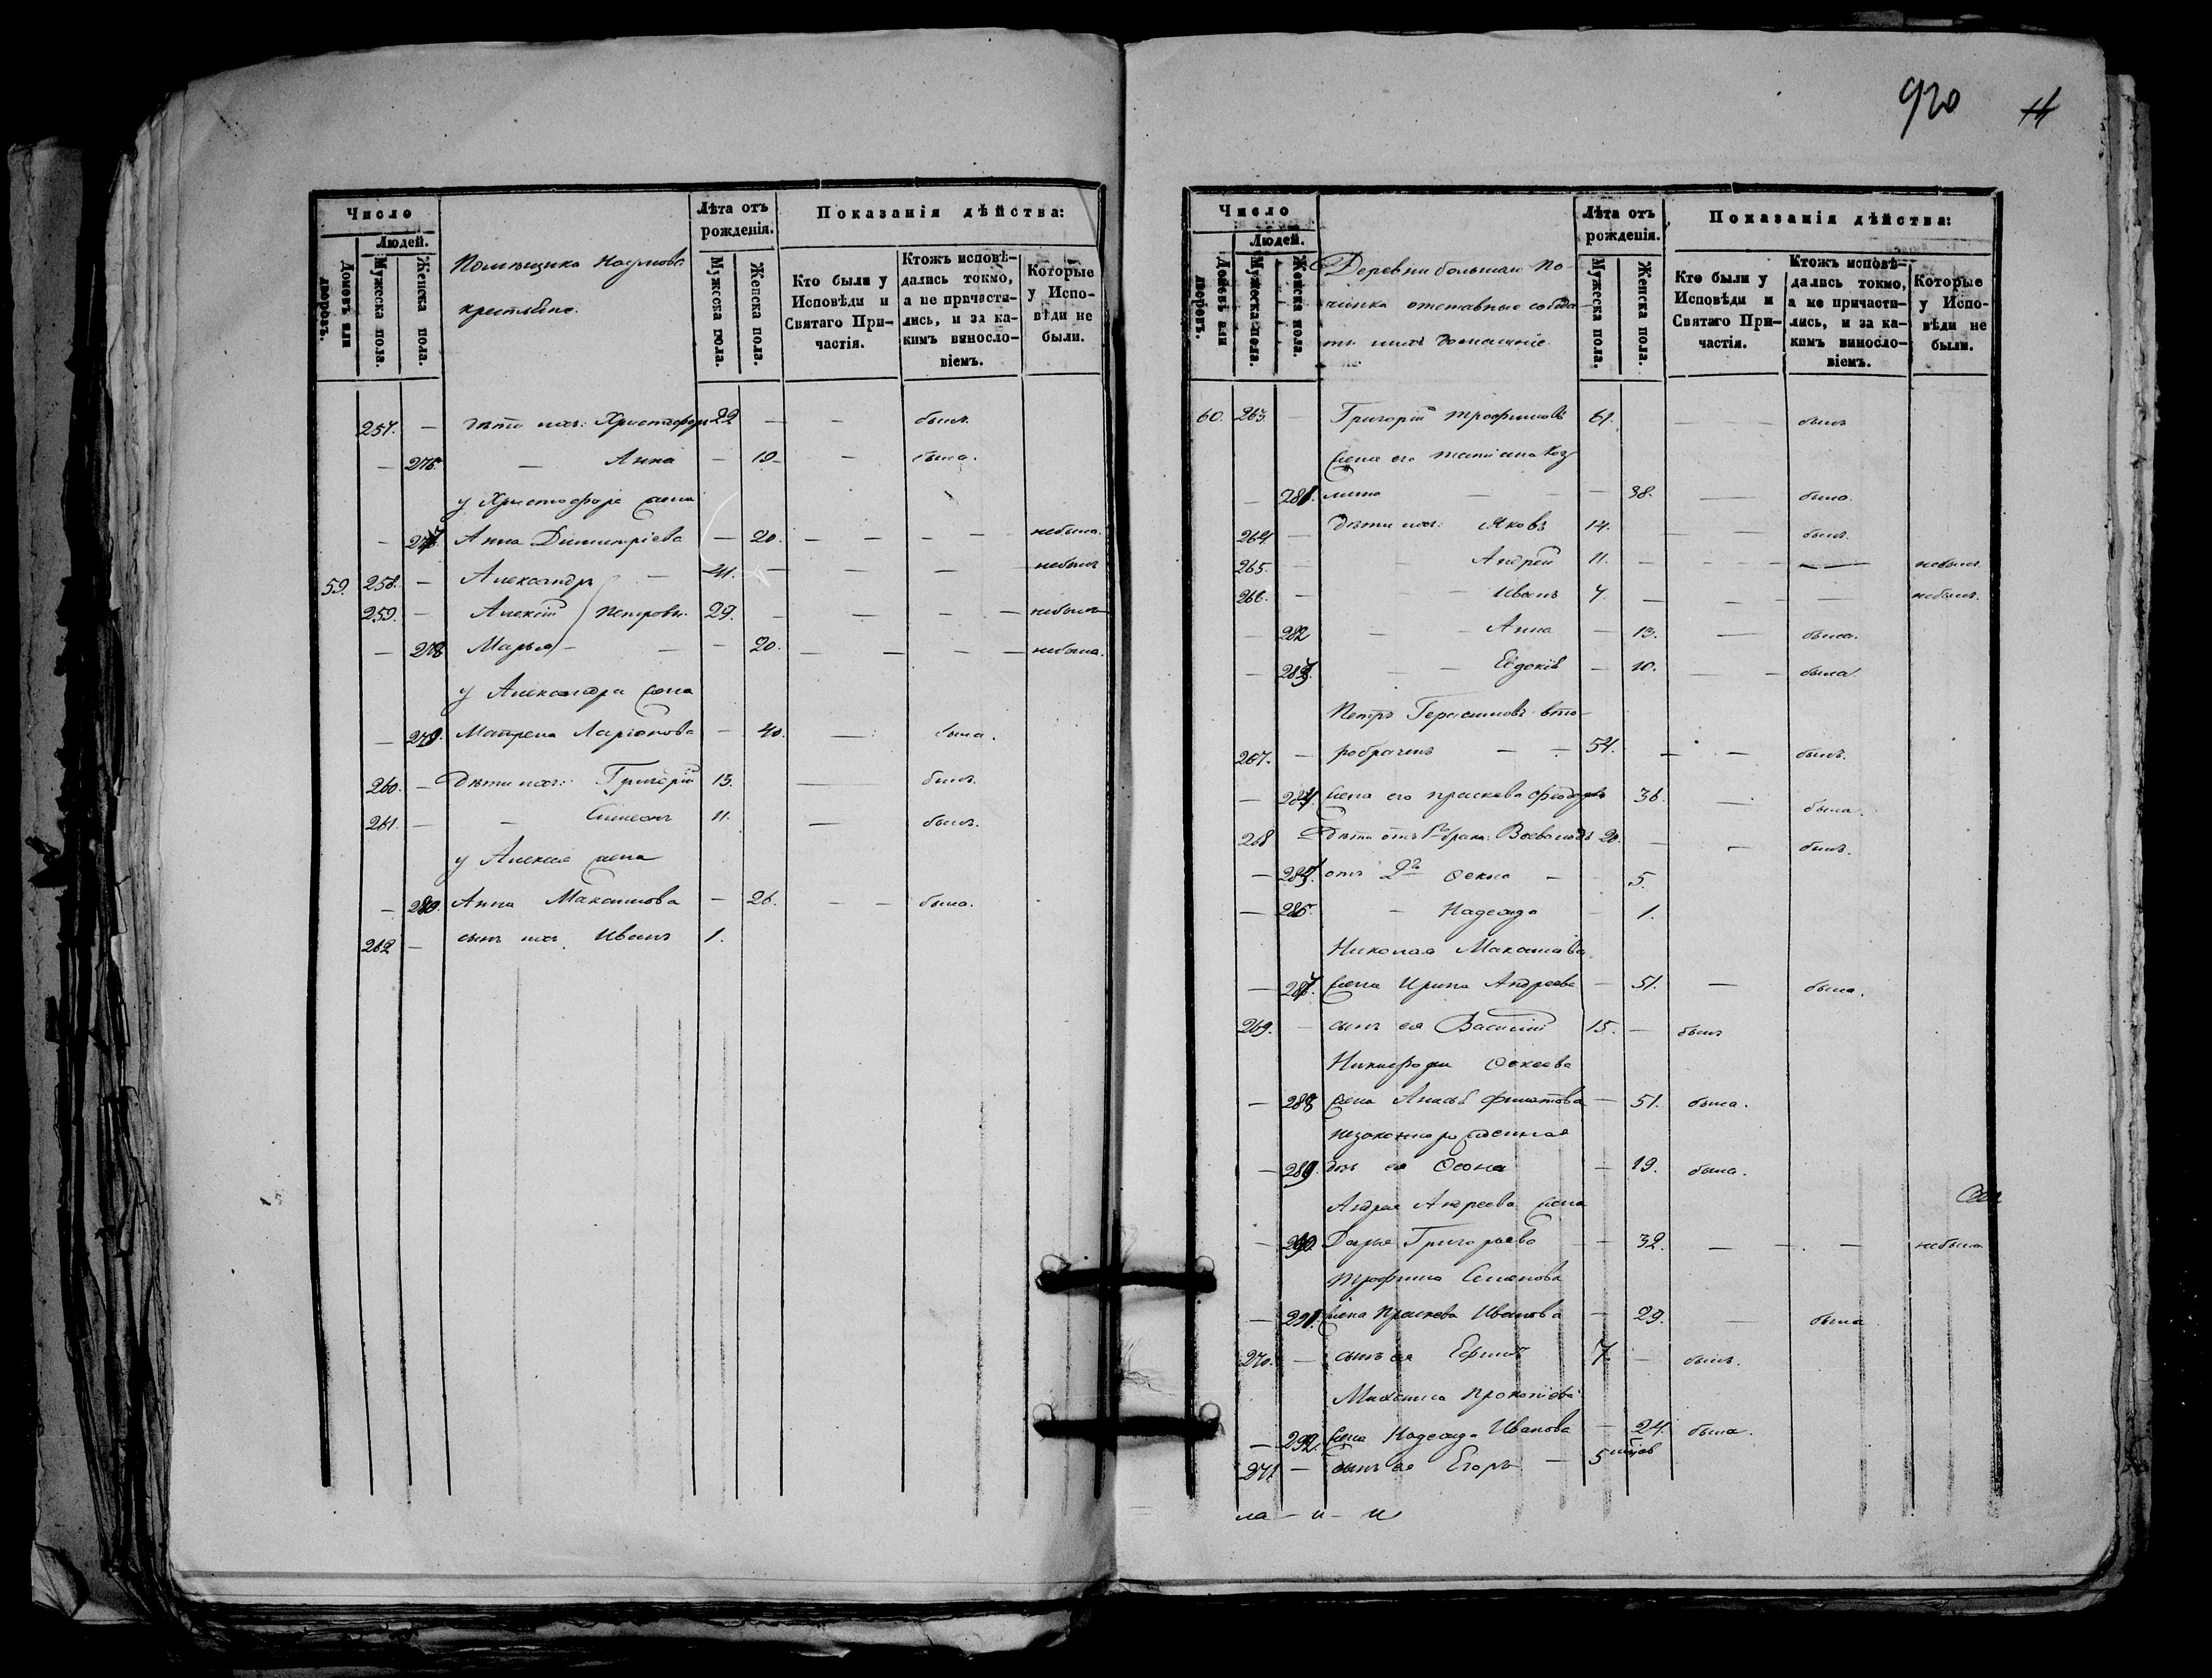 920 11
Число
Людей.
Домовъ или дворовъ.
Мужеска пола.
Женска пола.
Помѣщика Наумова
крестьяне.
Лѣта отъ рожденія.
Мужеска пола.
Женска пола.
Показанія дѣйства:
Кто были у Исповѣди и Святаго Причастія.
Ктожъ исповѣдались токмо, а не причастились, и за какимъ винословіемъ.
Которые у Исповѣди не были.
257. — дѣти ихъ: Христофоръ 22 — — былъ.
— 276. — Анна — 19 — была.
у Христофора жена
— 277. Анна Димитріева — 20. — — — — небыла.
59. 258. — Александръ — 41. — — — — небылъ
259. — Алексій Петровы 29. — — — — небылъ
— 278 Марья — — — 20. — — — — небыла.
у Александра жена
— 279. Матрена Ларіонова — 40. — была.
260. — Дѣти ихъ: Григорій 13. — былъ.
261. — — Симеонъ 11. — былъ.
у Алексея жена
— 280. Анна Максимова — 26. — — была.
262 — сынъ ихъ Иванъ 1.
Число
Людей.
Домовъ или дворовъ.
Мужеска пола.
Женска пола.
Деревни большаго По-
чинка отставные солда-
ты и ихъ домашніе.
Лѣта отъ рожденія.
Мужеска пола.
Женска пола.
Показанія дѣйства:
Кто были у Исповѣди и Святаго Причастія.
Ктожъ исповѣдались токмо, а не причастились, и за какимъ винословіемъ.
Которые у Исповѣди не были.
60. 263. — Григорій Трофимовъ 61. — — былъ
Жена его Татіана Коз
— 281. мина — — — 38. — была.
264 — Дѣти ихъ: Яковъ 14. — — былъ.
265. — — Андрей 11. — — — — небылъ.
266. — — Иванъ 7. — — — небылъ.
— 282 — — Анна — 13. — была.
— 283. — — Евдокія — 10. — — была.
Петръ Герасимовъ вто-
267. — робраченъ — — 54. — — былъ.
— 284. Жена его Праскева Феодорова 36. — была.
268 Дѣти отъ 1го брака: Всеволодъ 20. — — былъ.
— 285. отъ 2го Фекла — — 5.
— 286. — Надежда — 1.
Николая Максимова
— 287. Жена Ирина Андреева — 51. — была.
269. — сынъ ея Василій 15. — былъ
Никифора
— 288 Жена Филатова — 51. была.
незаконнорожденная
— 289. дочь ея — 19. была.
Андрея Андреева Жена
— 290. Дарья Григорьева — 32. — — — небыла.
Трофима Семенова
— 291. Жена Праскева Иванова — 29. — была
270. — сынъ ея Ефимъ 7. — былъ.
Михаила Прокопіева
— 292. Жена Надежда Иванова — 24. была.
271. — сынъ ея Егоръ — 5 мѣсяцев
ла — и — и